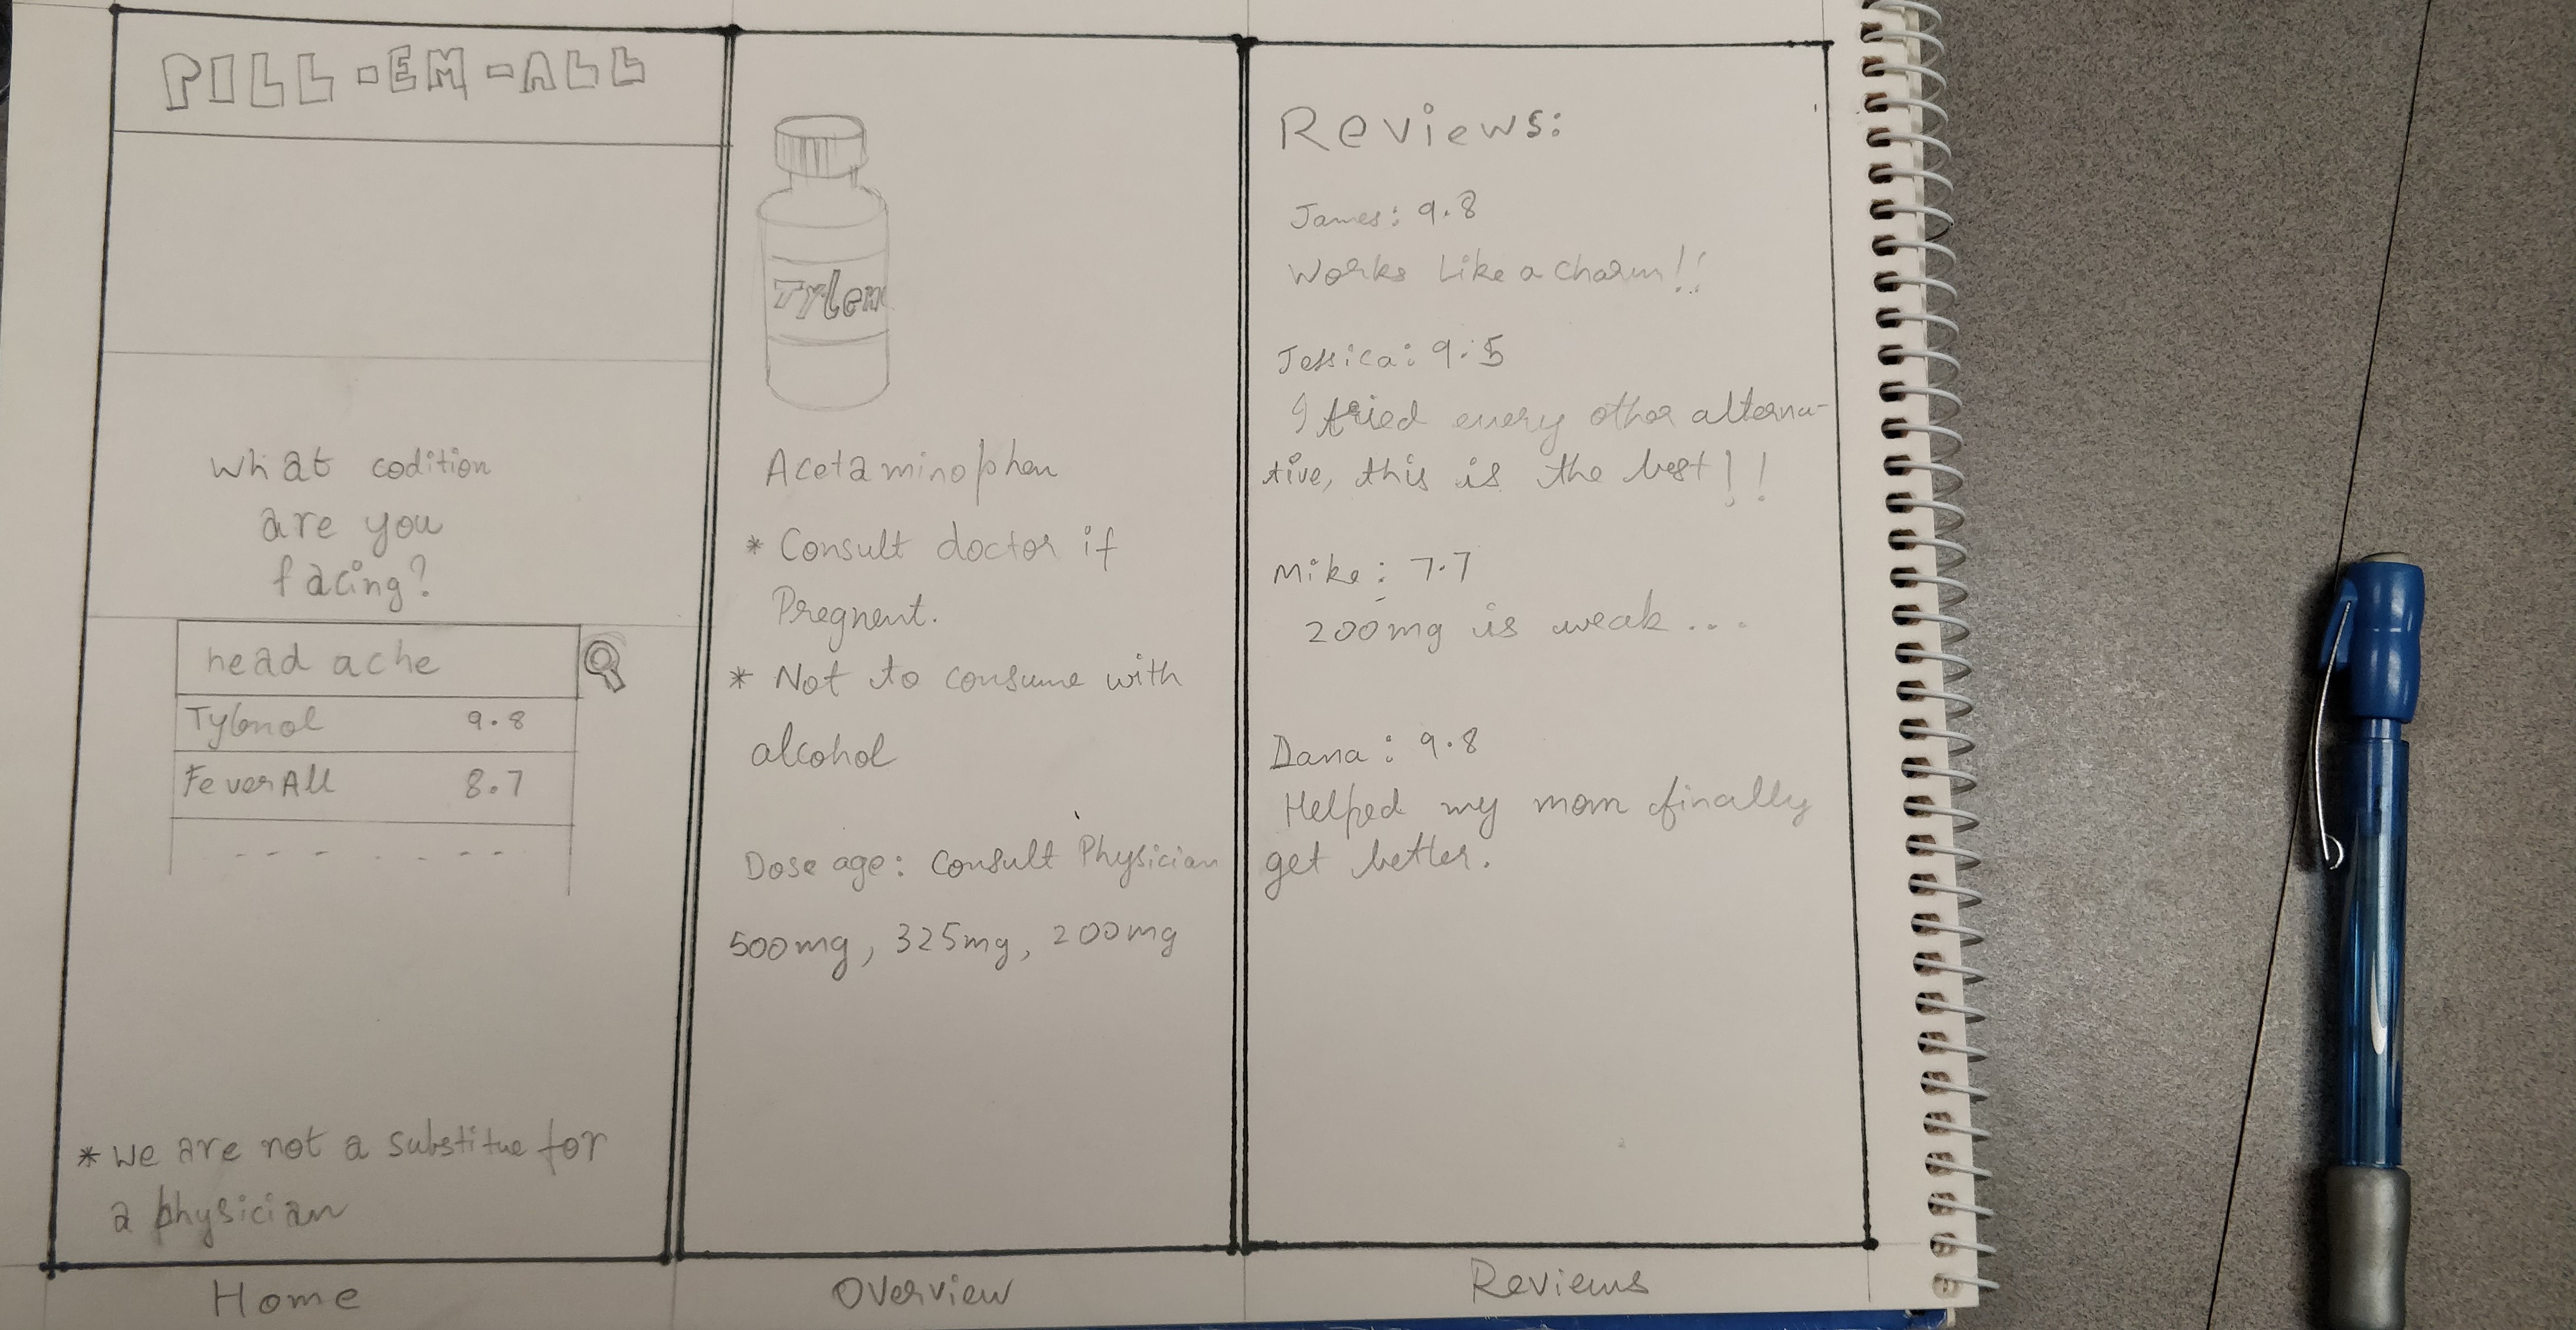 PILL-EM-ALL
What codition
are you
facing?
head ache
Tylenol 9.8
FeverAll 8.7
*we are not a substitue for
a physician
Home
Tylen
Acetaminophen
* Consult doctor if
Pregnent.
* Not to consume with
alcohol
Dose age: Consult Physician
500mg, 325mg, 200mg
Overview
Reviews:
James: 9.8
Works Like a charm!!
Jessica: 9.5
I tried every other alterna-
tive, this is the best!!
Mike: 7.7
200mg is weak...
Dana: 9.8
Helped my mom finally
get better.
Reviews